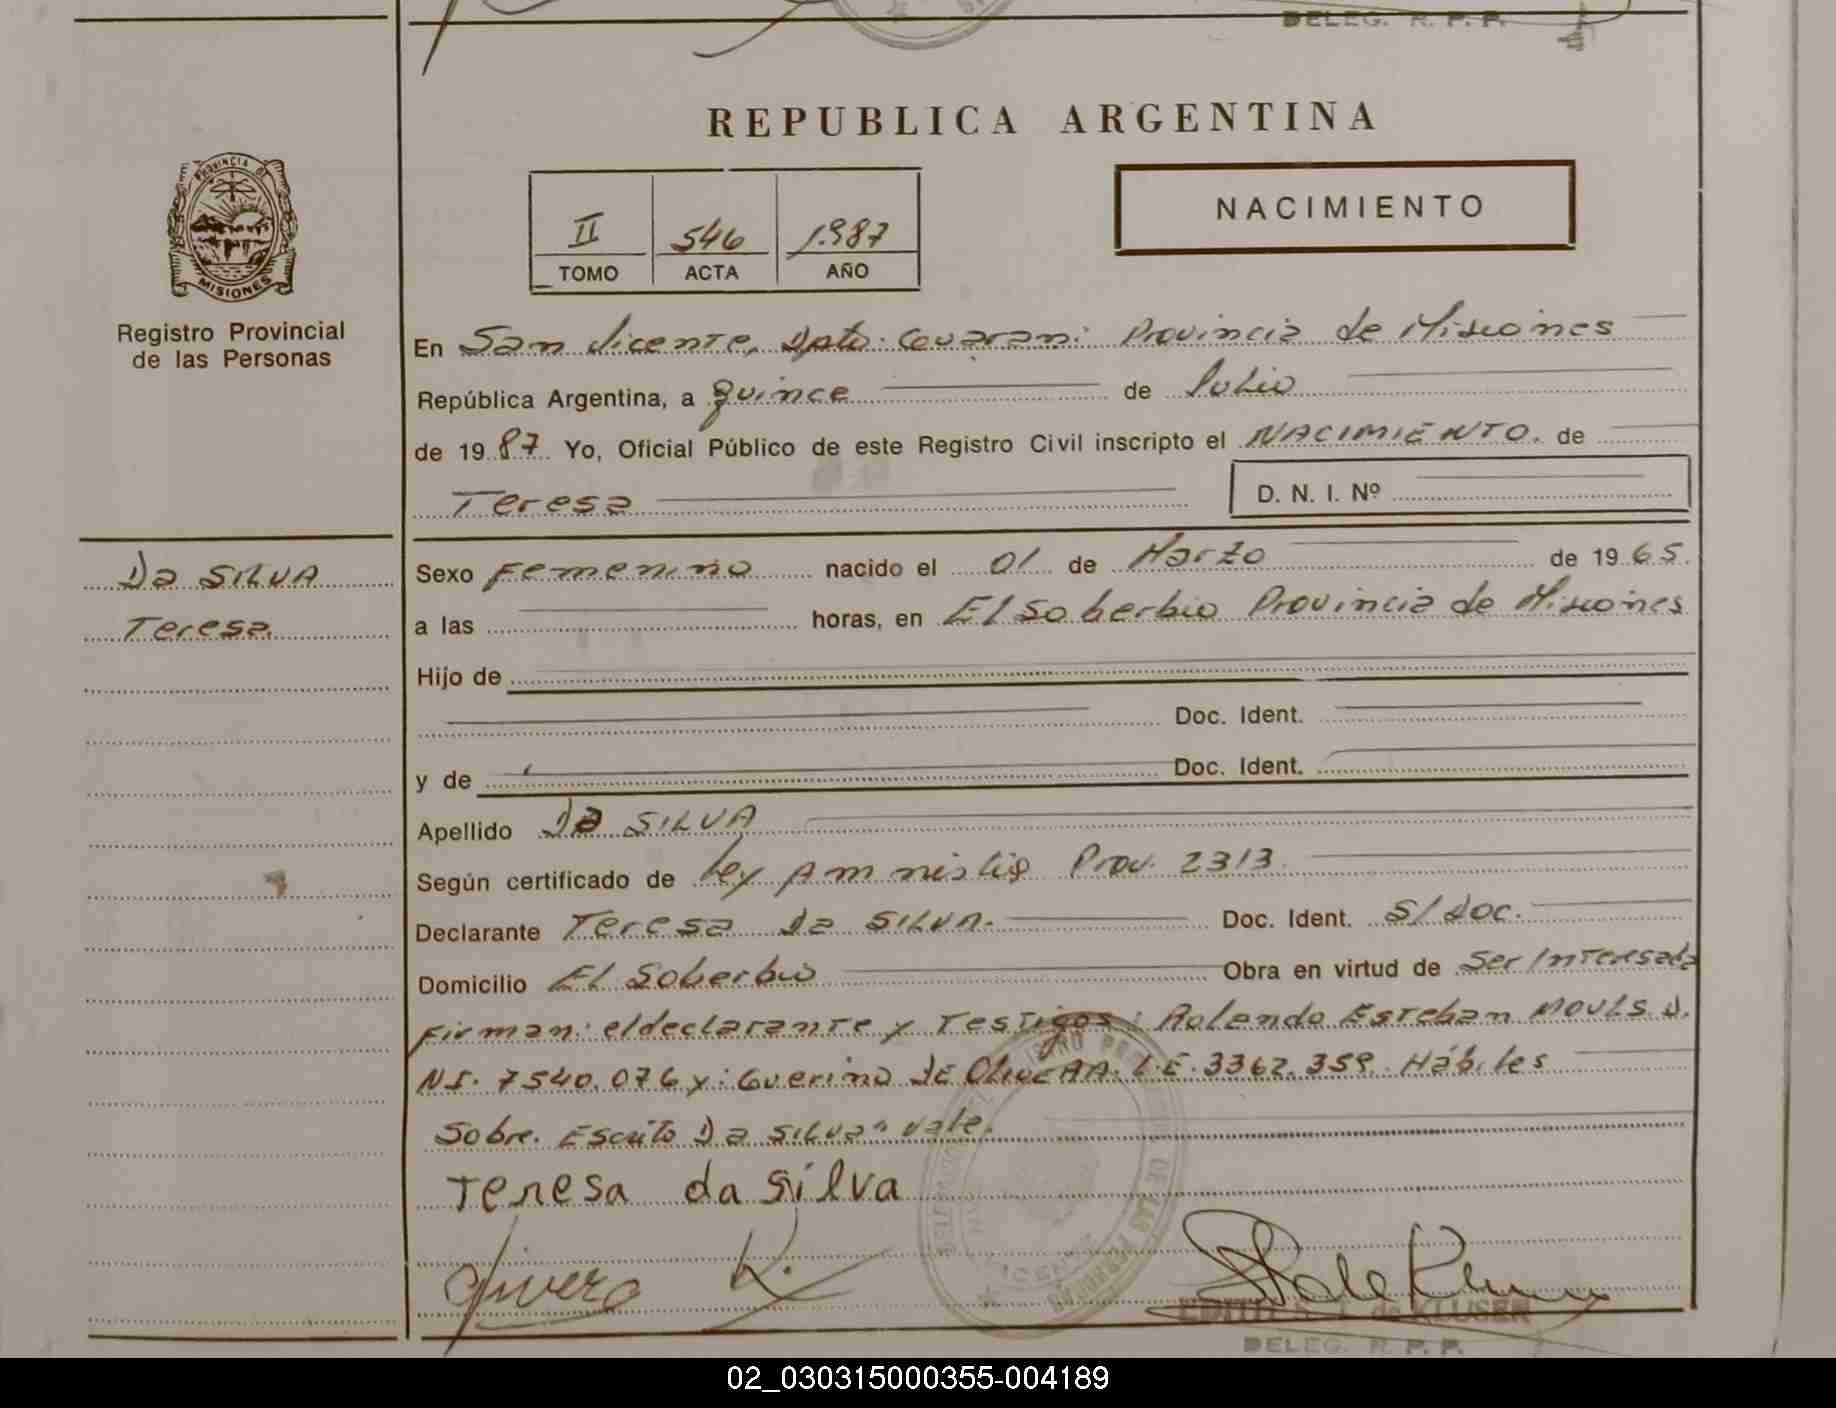 DELEG. R. P. P.
REPUBLICA ARGENTINA
PROVINCIA DE
MISIONES
Registro Provincial
de las Personas
II 546 1.987
TOMO ACTA AÑO
NACIMIENTO
En San Vicente, Dpto. Guaraní Provincia de Misiones
República Argentina, a quince de Julio
de 1987 Yo, Oficial Público de este Registro Civil inscripto el NACIMIENTO. de
Teresa D. N. I. Nº
Da SILVA
Teresa.
Sexo Femenino nacido el 01 de Marzo de 1965.
a las horas, en El Soberbio Provincia de Misiones
Hijo de
Doc. Ident.
y de Doc. Ident.
Apellido Da SILVA
Según certificado de Ley Amnistia Prov. 2313.
Declarante Teresa Da SILVA. Doc. Ident. S/Doc.
Domicilio El Soberbio Obra en virtud de Ser Interesada
Firman: el declarante y Testigos: Rolando Esteban MOULS D.
NI. 7540.076 y: Guerino DE OliveRA. L.E. 3362.359. Hábiles
Sobre. Escrito Da SILVA" vale.
Teresa da Silva
EDITH S. T. de KLUSER
DELEG. R. P. P.
02_030315000355-004189